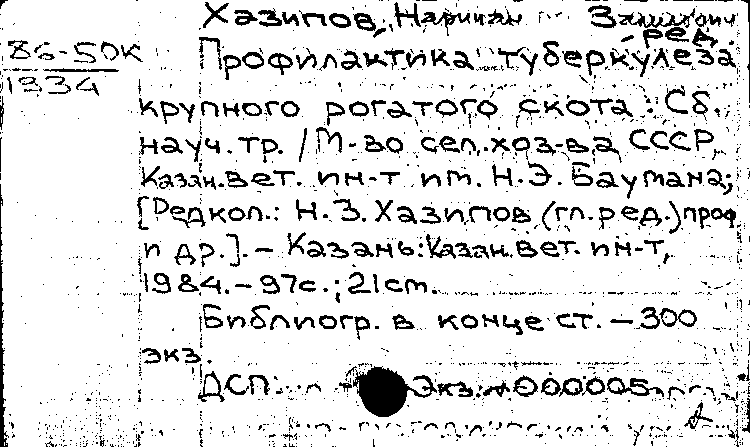 Хазипов, Нариман Залилович
- ред.
86-50к Профилактика туберкулеза
1334
крупного рогатого скота : Сб.
науч. тр. / М-во сел. хоз-ва СССР,
Казан. вет. ин-т им. Н.Э. Баумана;
[Редкол.: Н.З. Хазипов (гл. ред.) проф
и др.]. – Казань: Казан. вет. ин-т,
1984. – 97с.; 21см.
Библиогр. в конце ст. – 300
экз.
ДСП: Экз. 000005